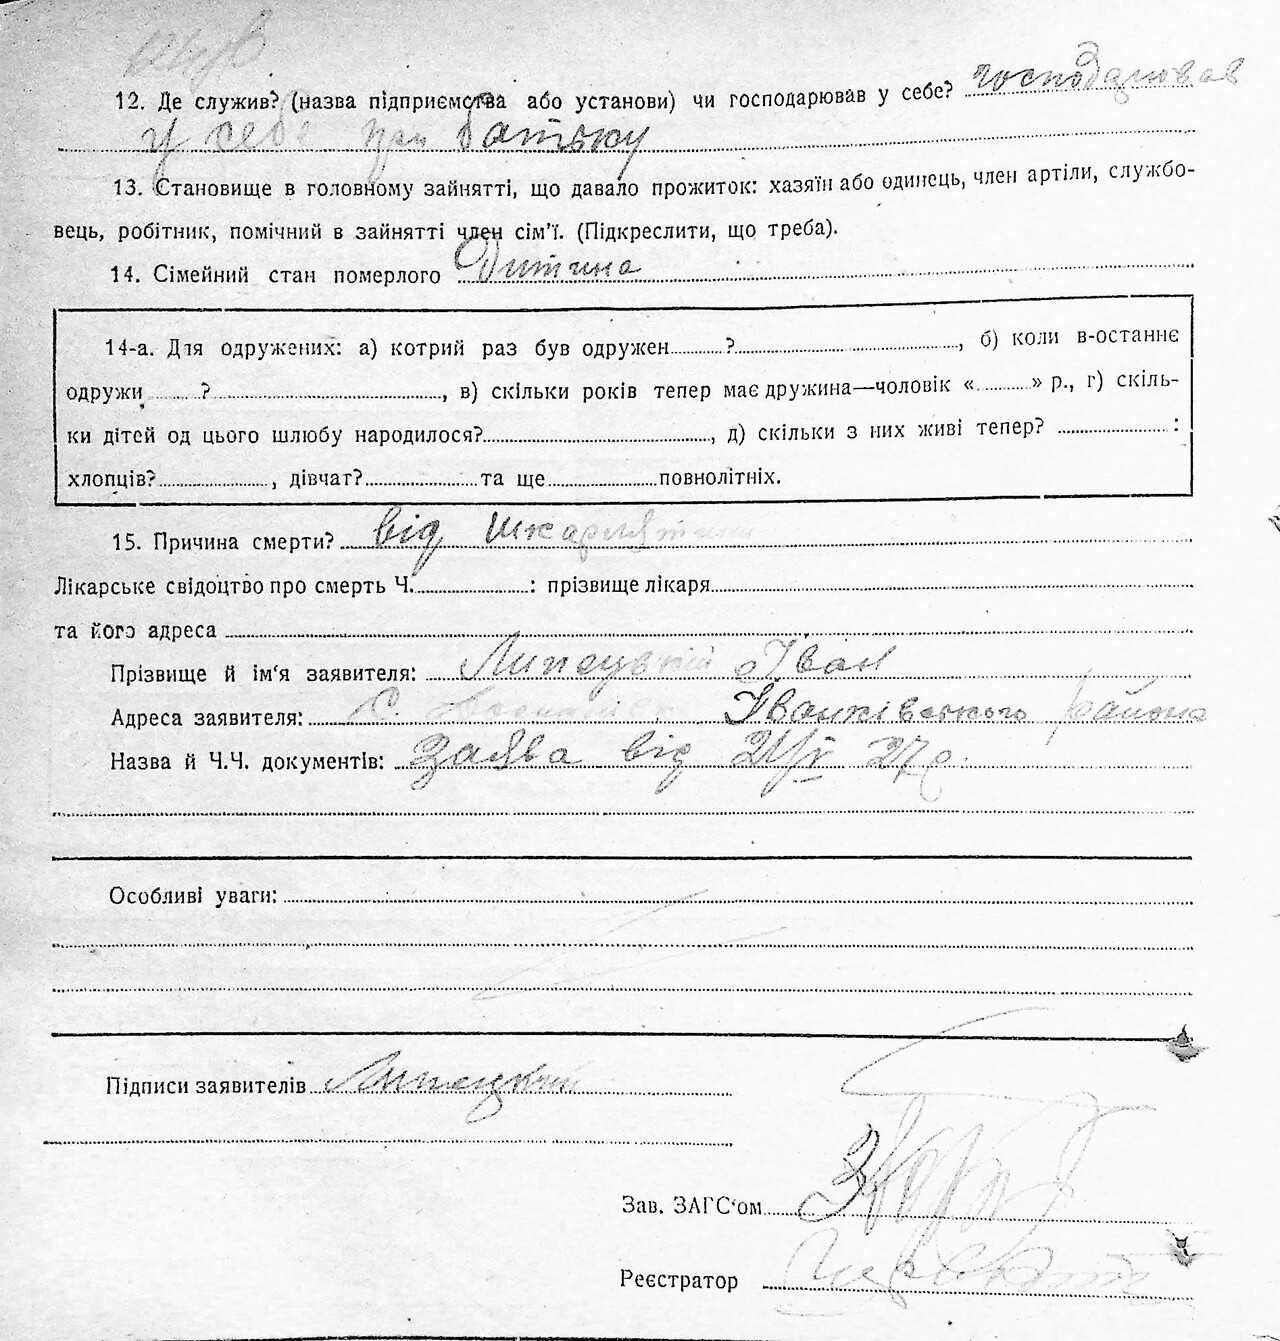 12. Де служив? (назва підприємства або установи) чи господарював у себе? господарював
у себе при батьку
13. Становище в головному зайнятті, що давало прожиток: хазяїн або одинець, член артіли, службо-
вець, робітник, помічний в зайнятті член сім'ї. (Підкреслити, що треба).
14. Сімейний стан померлого Дитина
14-а. Для одружених: а) котрий раз був одружен......?......, б) коли в-останнє
одружи......?......, в) скільки років тепер має дружина—чоловік «......» р., г) скіль-
ки дітей од цього шлюбу народилося?......, д) скільки з них живі тепер? ......:
хлопців?......, дівчат?......та ще......повнолітніх.
15. Причина смерти? від шкарлятини
Лікарське свідоцтво про смерть Ч.......: прізвище лікаря......
та його адреса ......
Прізвище й ім'я заявителя: Липецький Іван
Адреса заявителя: с. Іванківського району
Назва й Ч.Ч. документів: Заява від 21/V 27 р.
Особливі уваги:
Підписи заявителів Липецький
Зав. ЗАГС'ом
Реєстратор